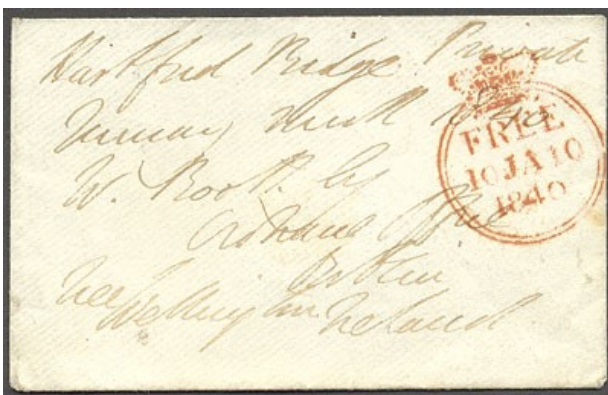 Hartford Bridge Private
January ninth 1840
W. Booth
Ordnance Office
Dublin
Wellington Ireland
FREE
10 JA 10
1840